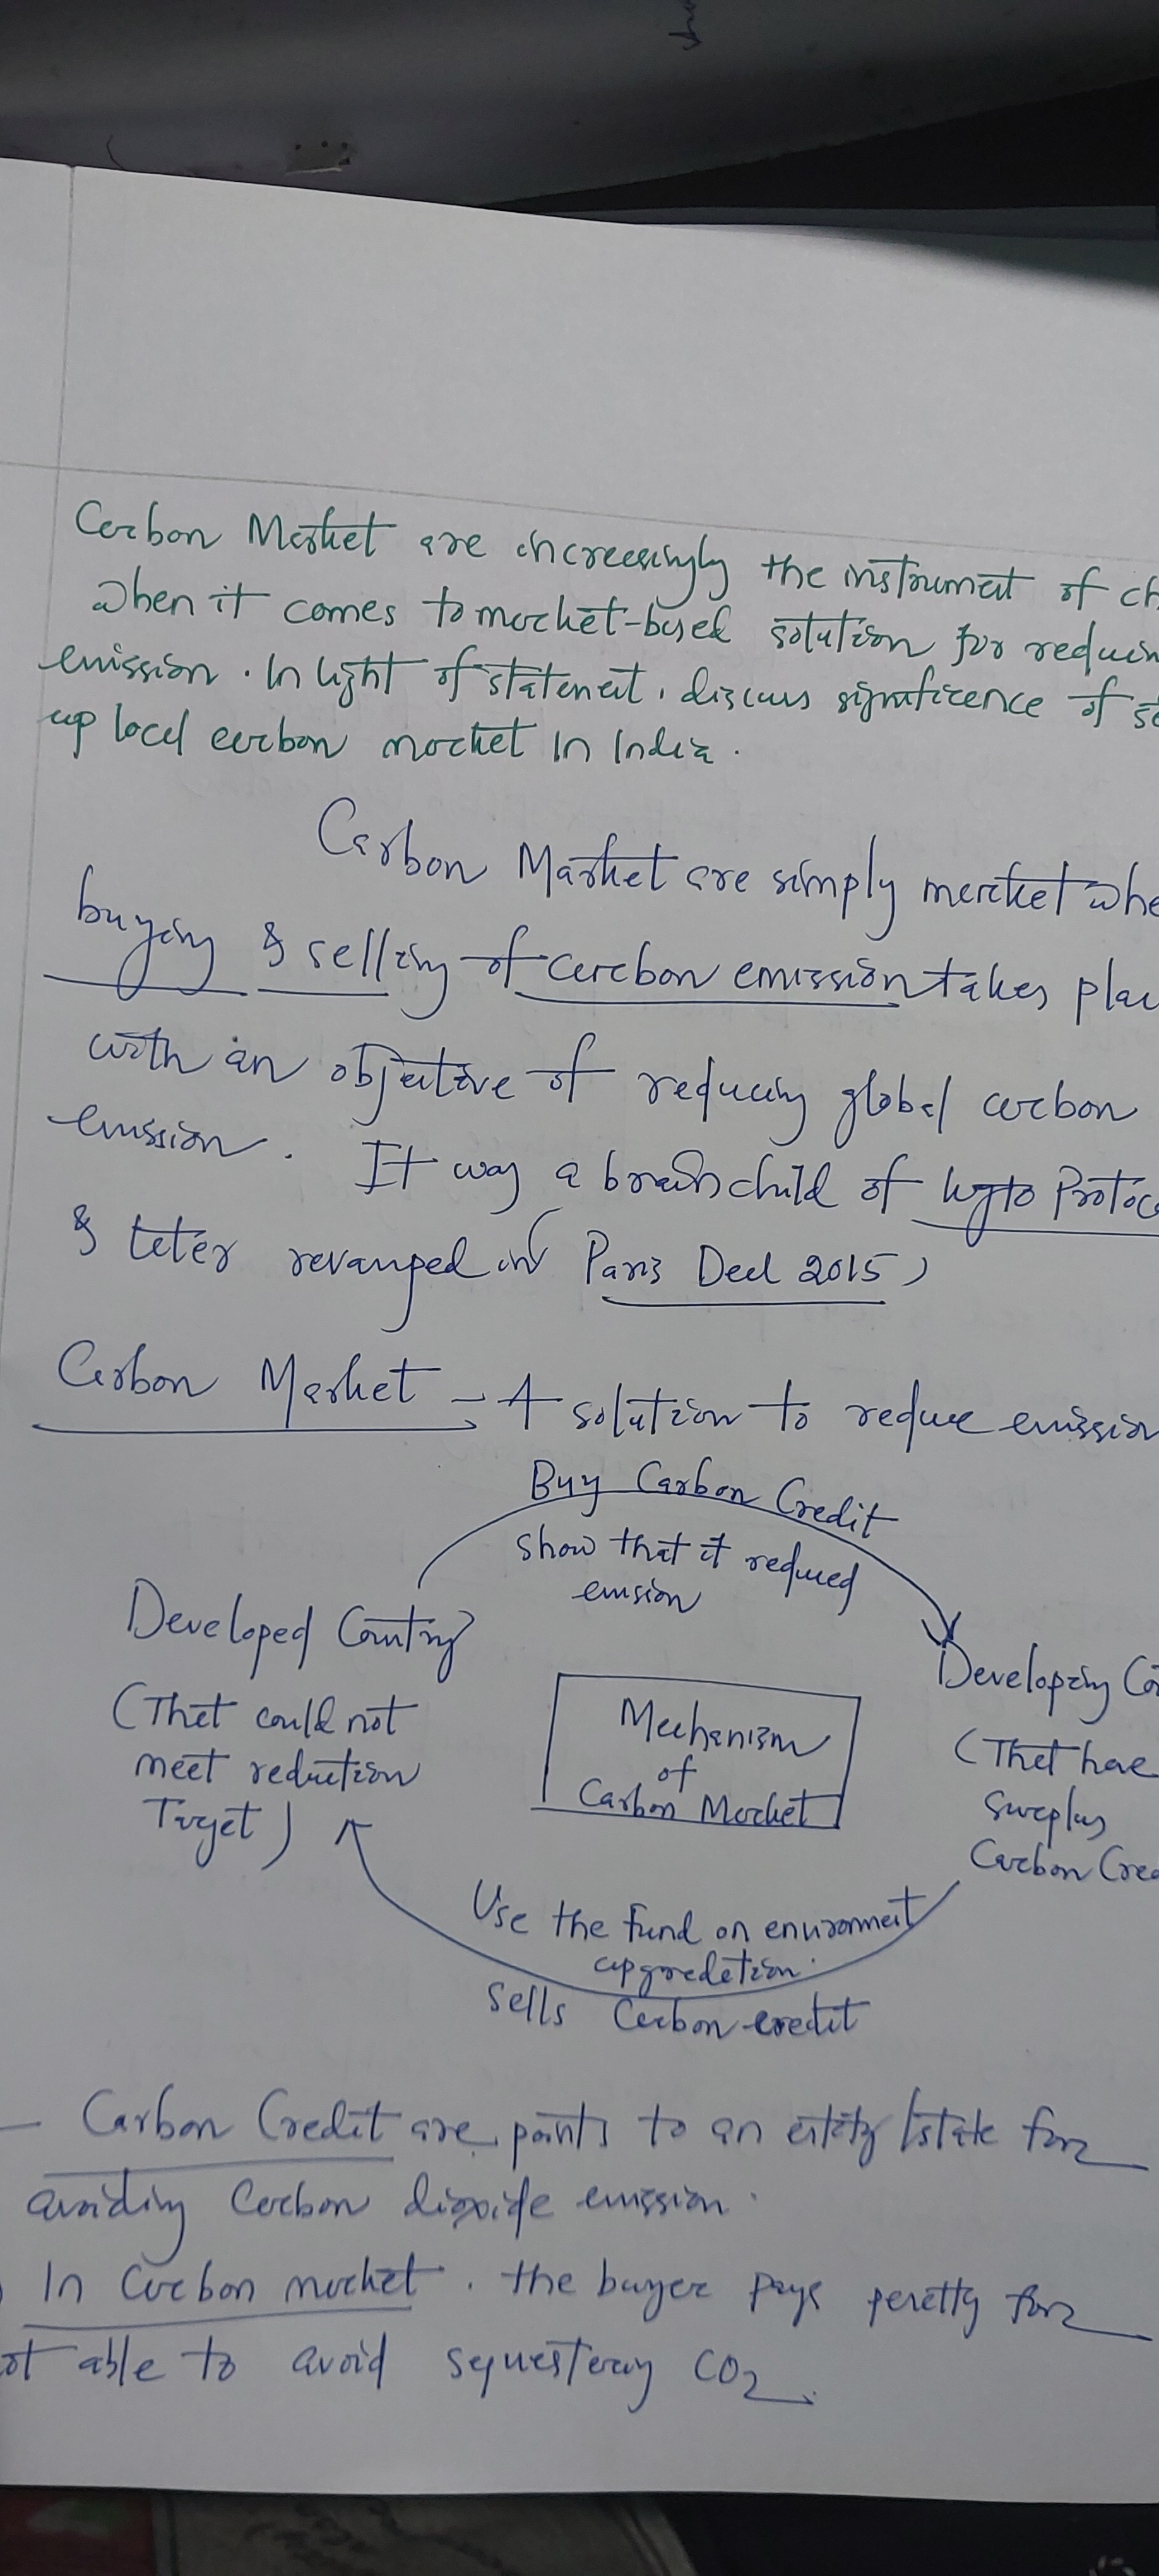 Carbon Market are increasingly the instrument of ch
when it comes to market-based solution for reducin
emission. In light of statement, discuss significence of se
up local carbon market in India.
Carbon Market are simply market whe
buying & selling of carbon emission takes plac
with an objective of reducing global carbon
emission. It way a brainchild of kyoto Protoc
& later revamped in Paris Deal 2015)
Carbon Market - A solution to reduce emission
Buy Carbon Credit
show that it reduced
emision
Developed Country
(That could not
meet reduction
Target)
Mechanism
of
Carbon Market
Developing Co
(That have
surplus
Carbon Cre
Use the fund on environment
upgradation.
Sells Carbon credit
- Carbon Credit are points to an entity/state for
avoiding Carbon dioxide emission.
In Carbon market, the buyer pays penalty for
ot able to avoid sequestering CO2.